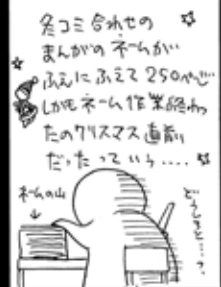 冬コミ合わせの
まんがのネームが
ふえにふえて250ページ
しかもネーム作業終わっ
たのクリスマス直前
だったっていう....
ネームの山
↓
どうしよ...?